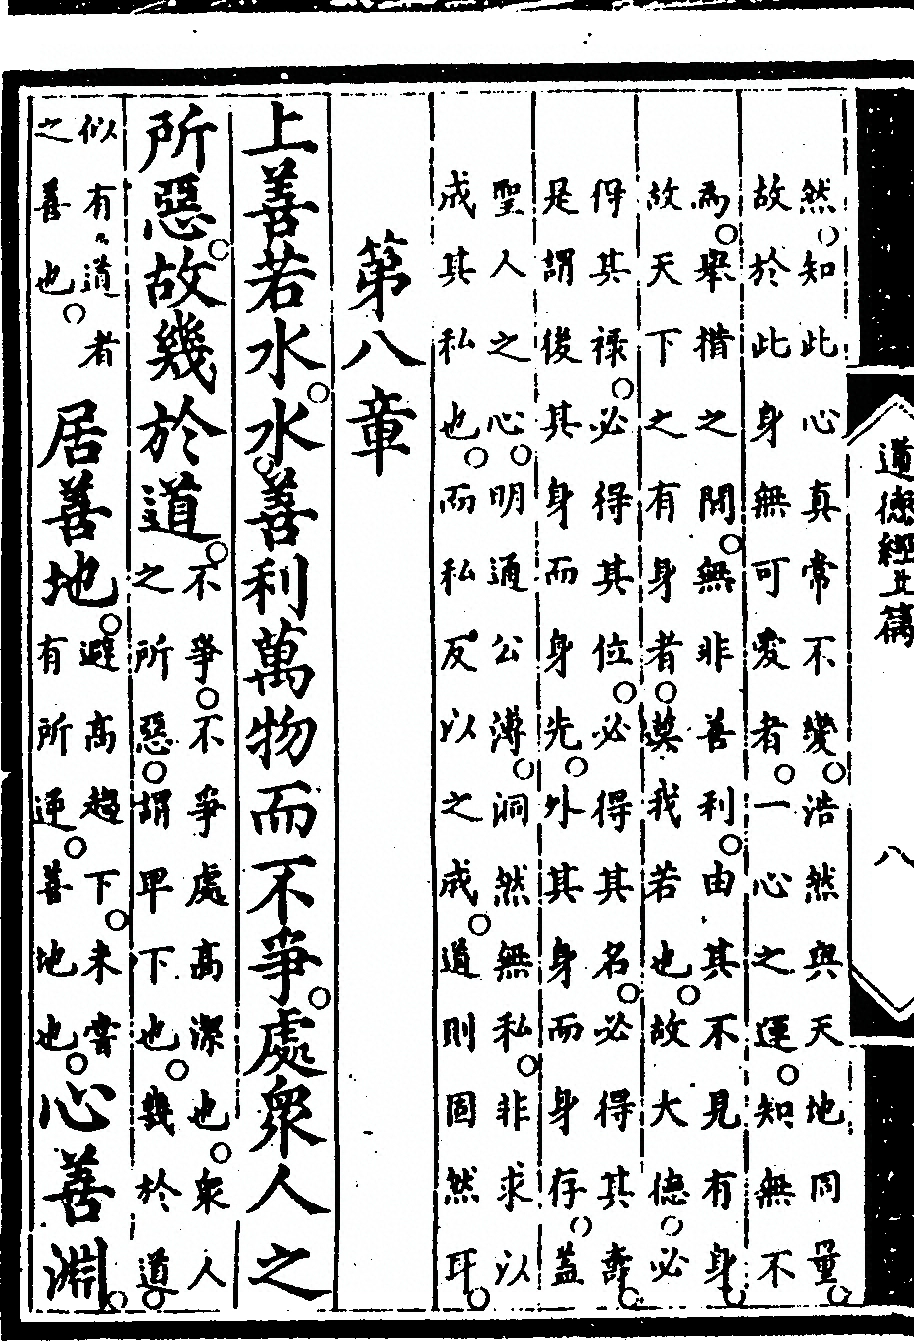 道德經上篇 八
然。知此心真常不變。浩然與天地同量。
故於此身無可愛者。一心之運。知無不
為。舉措之間。無非善利。由其不見有身。
故天下之有身者。莫我若也。故大德。必
得其祿。必得其位。必得其名。必得其壽。
是謂後其身而身先。外其身而身存。蓋
聖人之心。明通公溥。洞然無私。非求以
成其私也。而私反以之成。道則固然耳。
第八章
上善若水。水。善利萬物而不爭。處衆人之
所惡。故幾於道。不爭。不爭處高潔也。衆人
之所惡。謂卑下也。幾於道。
似有〻道者
之善也。居善地。避高趨下。未嘗
有所逆。善地也。心善淵。